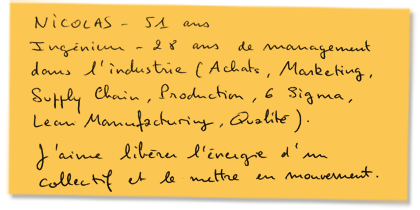 NICOLAS - 51 ans
Ingénieur - 28 ans de management
dans l'industrie (Achats, Marketing,
Supply Chain, Production, 6 Sigma,
Lean Manufacturing, Qualité).
J'aime libérer l'énergie d'un
collectif et le mettre en mouvement.